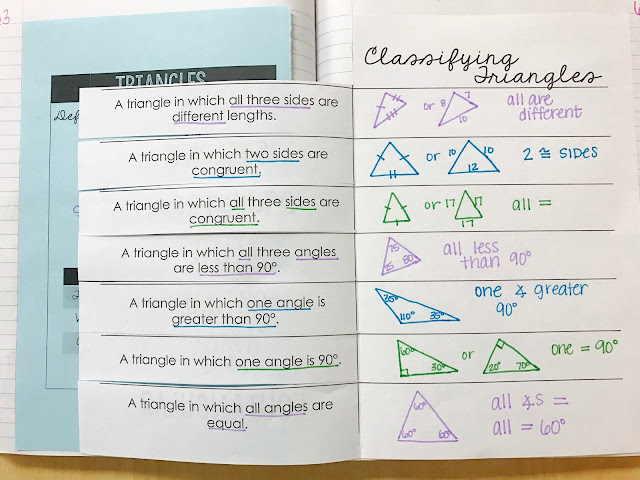 Classifying
Triangles
TRIANGLES
Def
A triangle in which all three sides are
different lengths.
or 8 7 10
all are
different
A triangle in which two sides are
congruent.
or 10 10 12
2 ≅ sides
A triangle in which all three sides are
congruent.
or 17 17 17
all =
A triangle in which all three angles
are less than 90°.
75 25 80°
all less
than 90°
A triangle in which one angle is
greater than 90°.
110° 35°
one ∡ greater
90°
A triangle in which one angle is 90°.
60° 30° or 20° 70°
one = 90°
A triangle in which all angles are
equal.
60° 60° 60°
all ∡s =
all = 60°